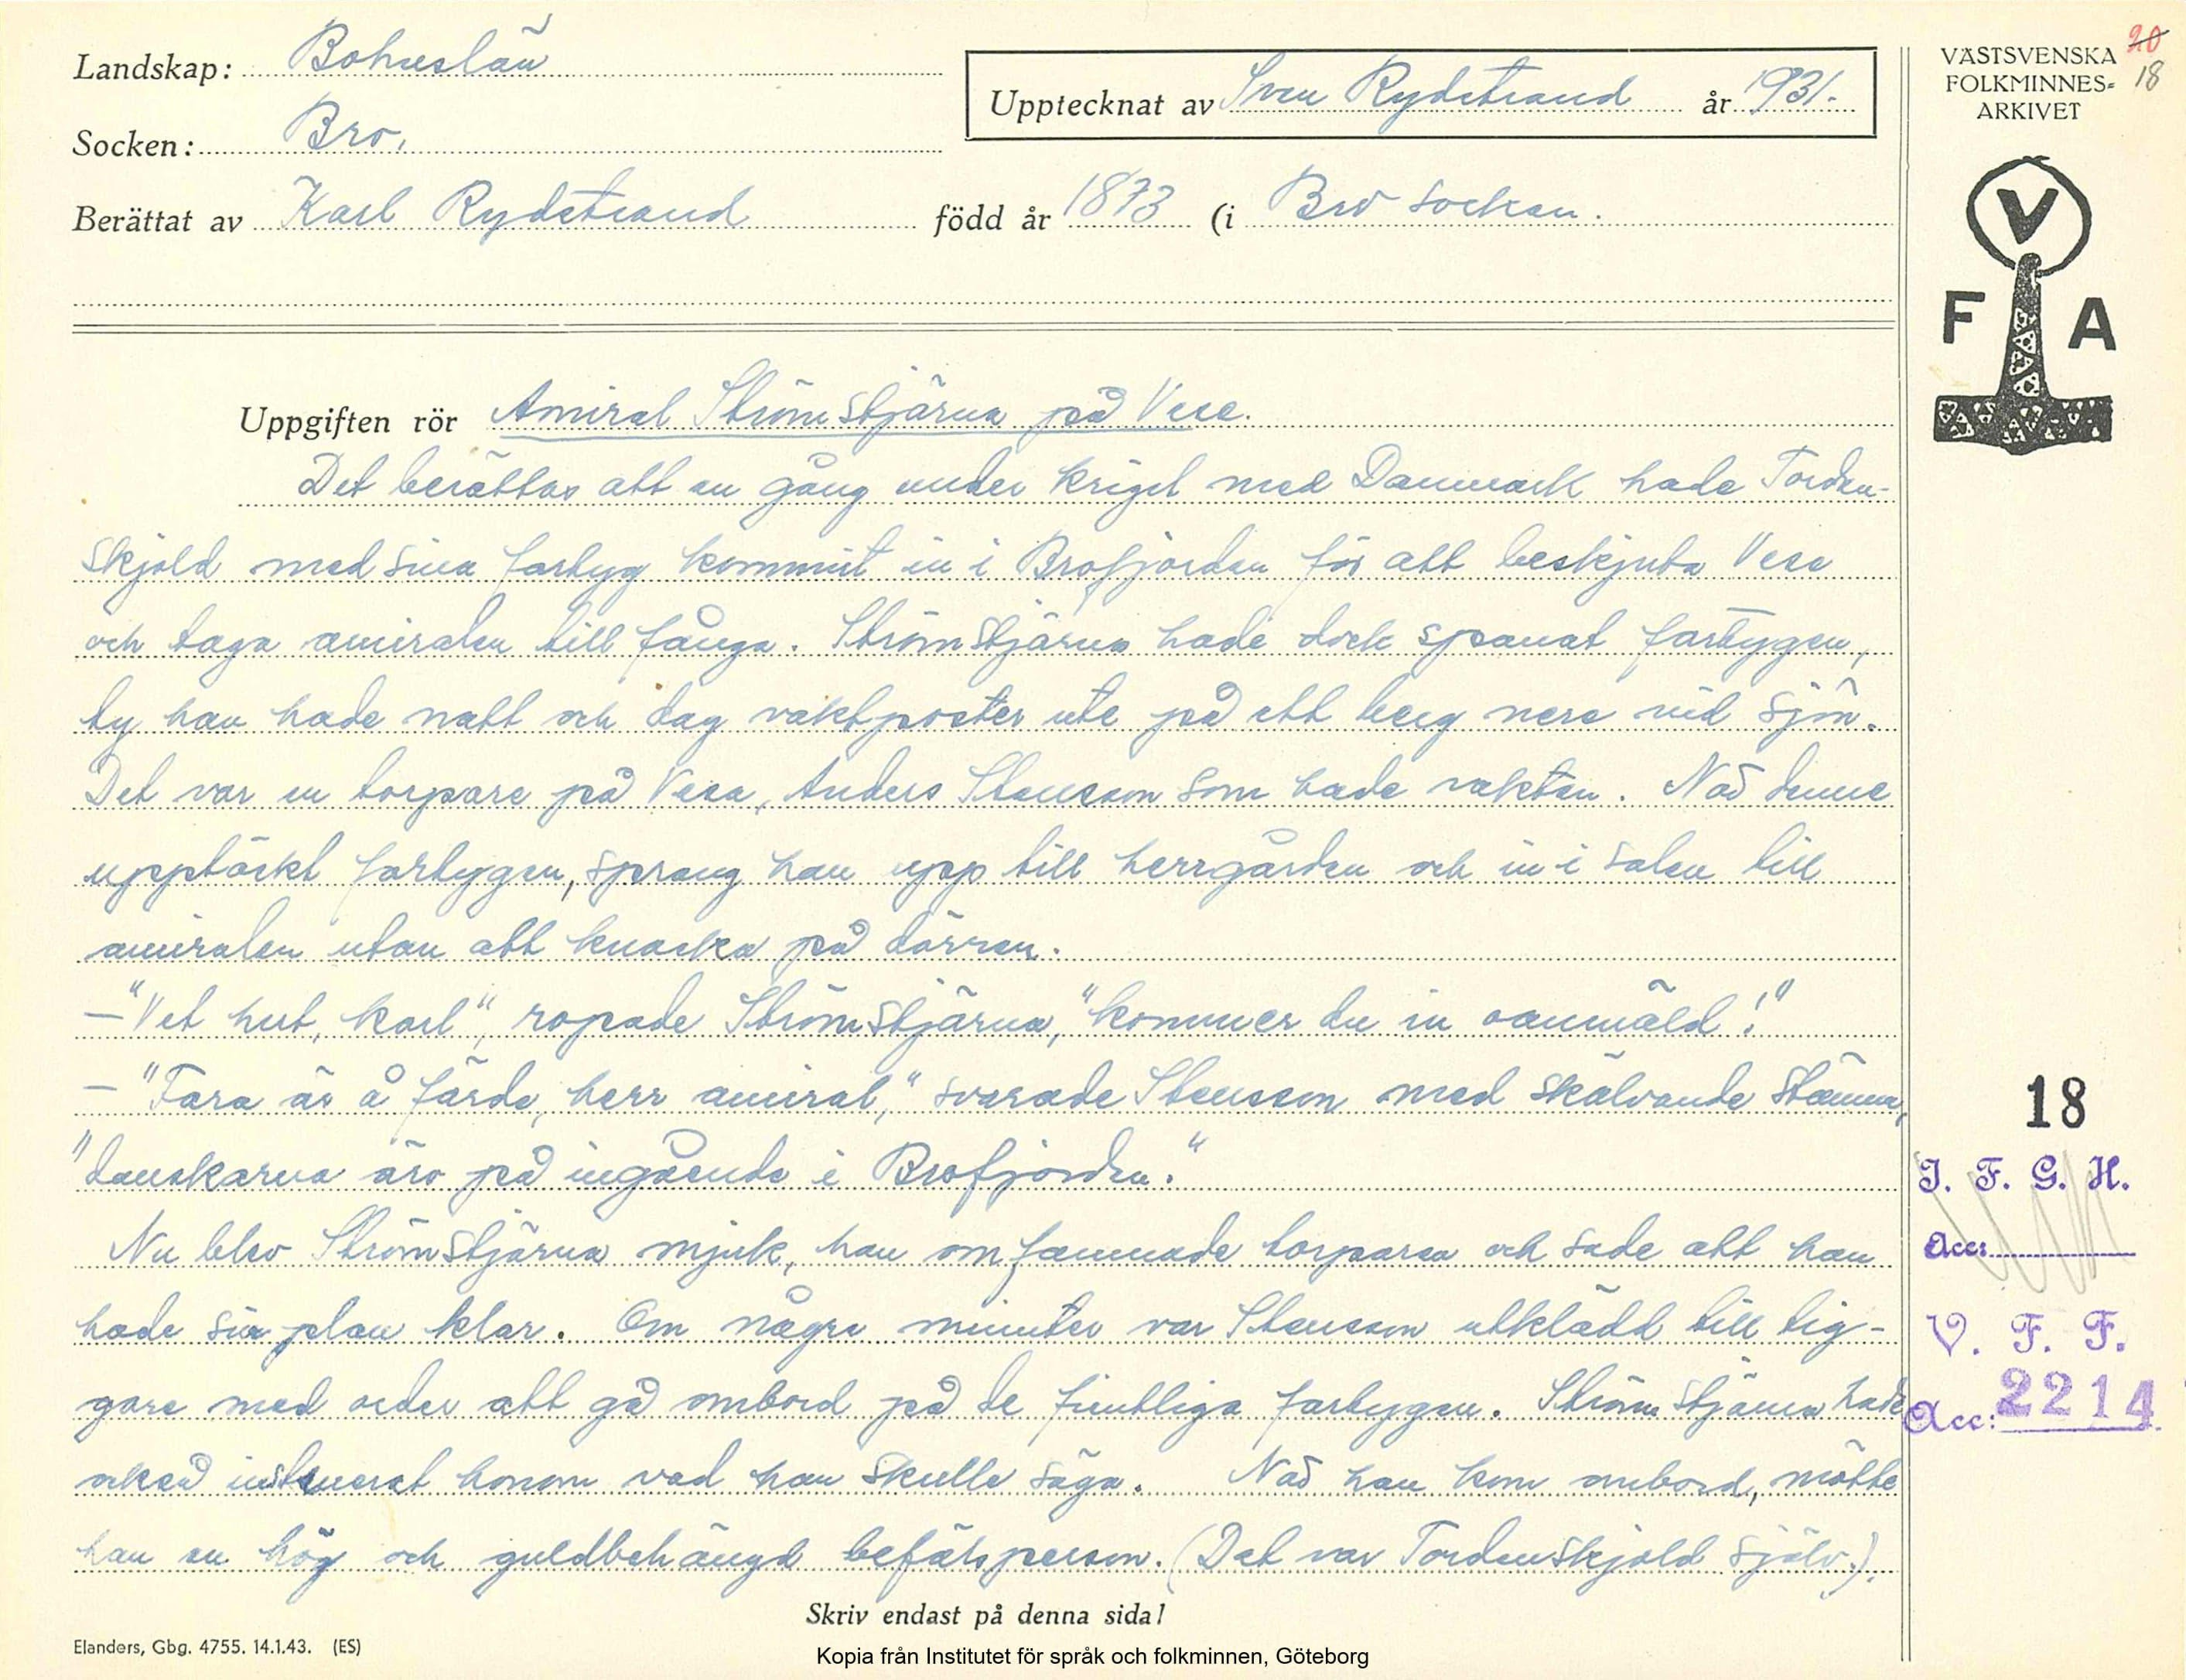 Landskap: Bohuslän
Socken: Bro.
Berättat av Karl Rydstrand född år 1873 (i Bro socken.
Upptecknat av Sven Rydstrand år 1931.
VÄSTSVENSKA
FOLKMINNES-
ARKIVET
20
18
V
F A
Uppgiften rör Amiral Strömstjärna på Vese.
Det berättas att en gång under kriget med Danmark hade Torden-
skjold med sina fartyg kommit in i Brofjorden för att beskjuta Vese
och taga amiralen till fånga. Strömstjärna hade dock spanat fartygen,
ty han hade natt och dag vaktposter ute på ett berg nere vid sjön.
Det var en torpare på Vese, Anders Stensson som hade vakten. När denne
upptäckt fartygen, sprang han upp till herrgården och in i salen till
amiralen utan att knacka på dörren.
– "Vet hut, karl", ropade Strömstjärna, "kommer du in oanmäld!"
– "Fara är å färde, herr amiral," svarade Stensson med skälvande stämma,
"danskarna äro på ingående i Brofjorden."
Nu blev Strömstjärna mjuk, han omfamnade torparen och sade att han
hade sin plan klar. Om några minuter var Stensson utklädd till tig-
gare med order att gå ombord på de fientliga fartygen. Strömstjärna hade
också instruerat honom vad han skulle säga. När han kom ombord, mötte
han en hög och guldbehängd befälsperson. (Det var Tordenskjold själv.).
18
I. F. G. H.
Acc:
V. F. F.
Acc: 2214
Skriv endast på denna sida!
Elanders, Gbg. 4755. 14.1.43. (ES)
Kopia från Institutet för språk och folkminnen, Göteborg